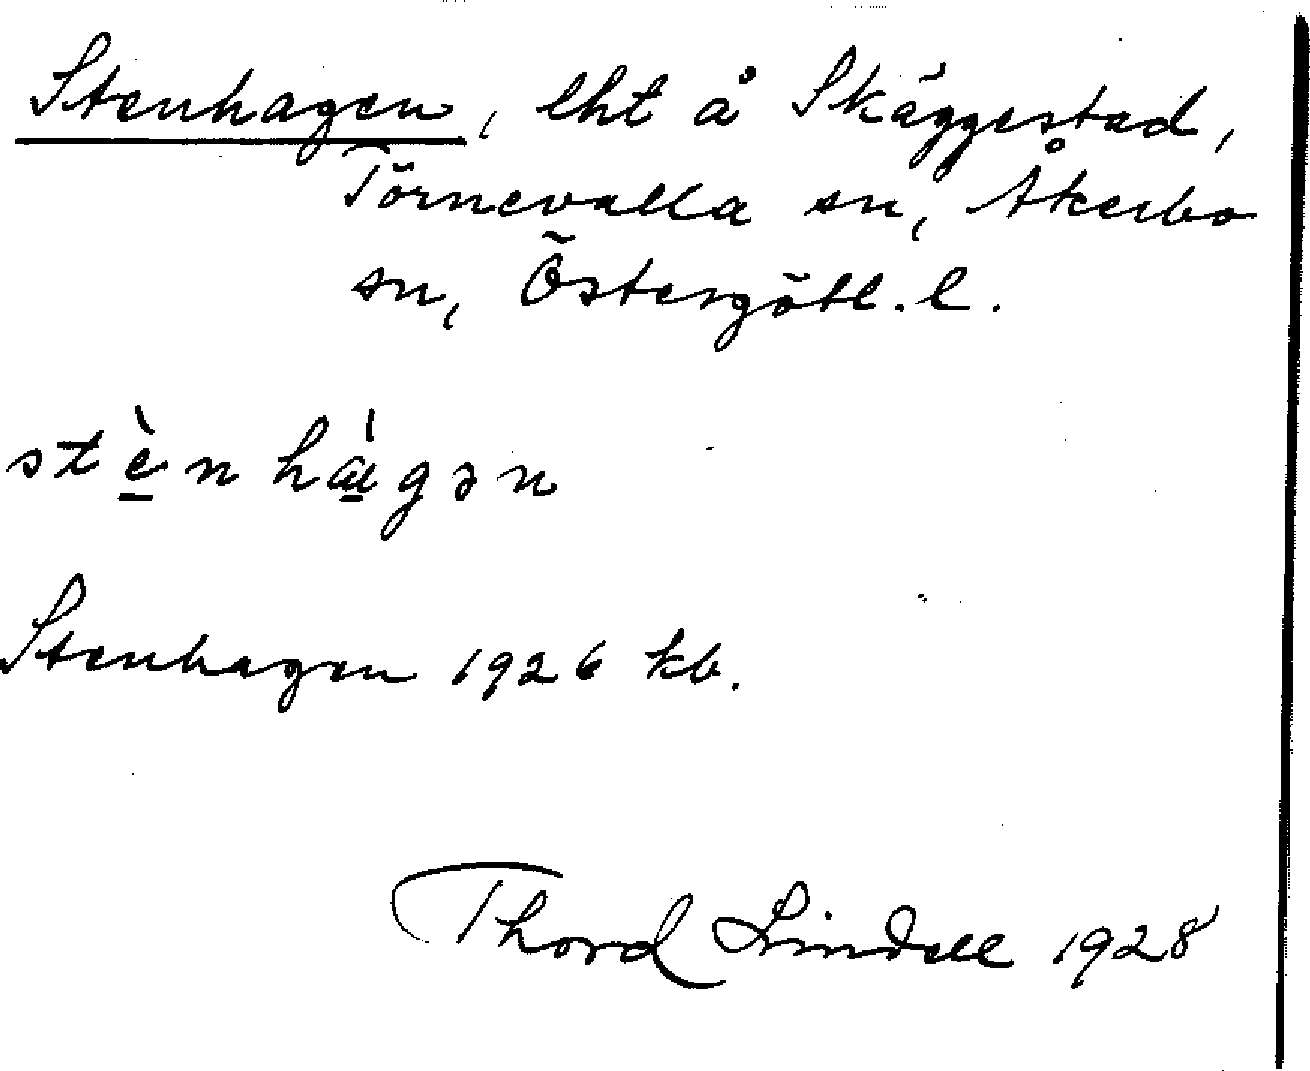 Stenhagen, lht å Skäggestad,
Törnevalla sn, Åkerbo
sn, Östergötl. l.
stè̠n hà̠gən
Stenhagen 1926 kb.
Thord Lindell 1928